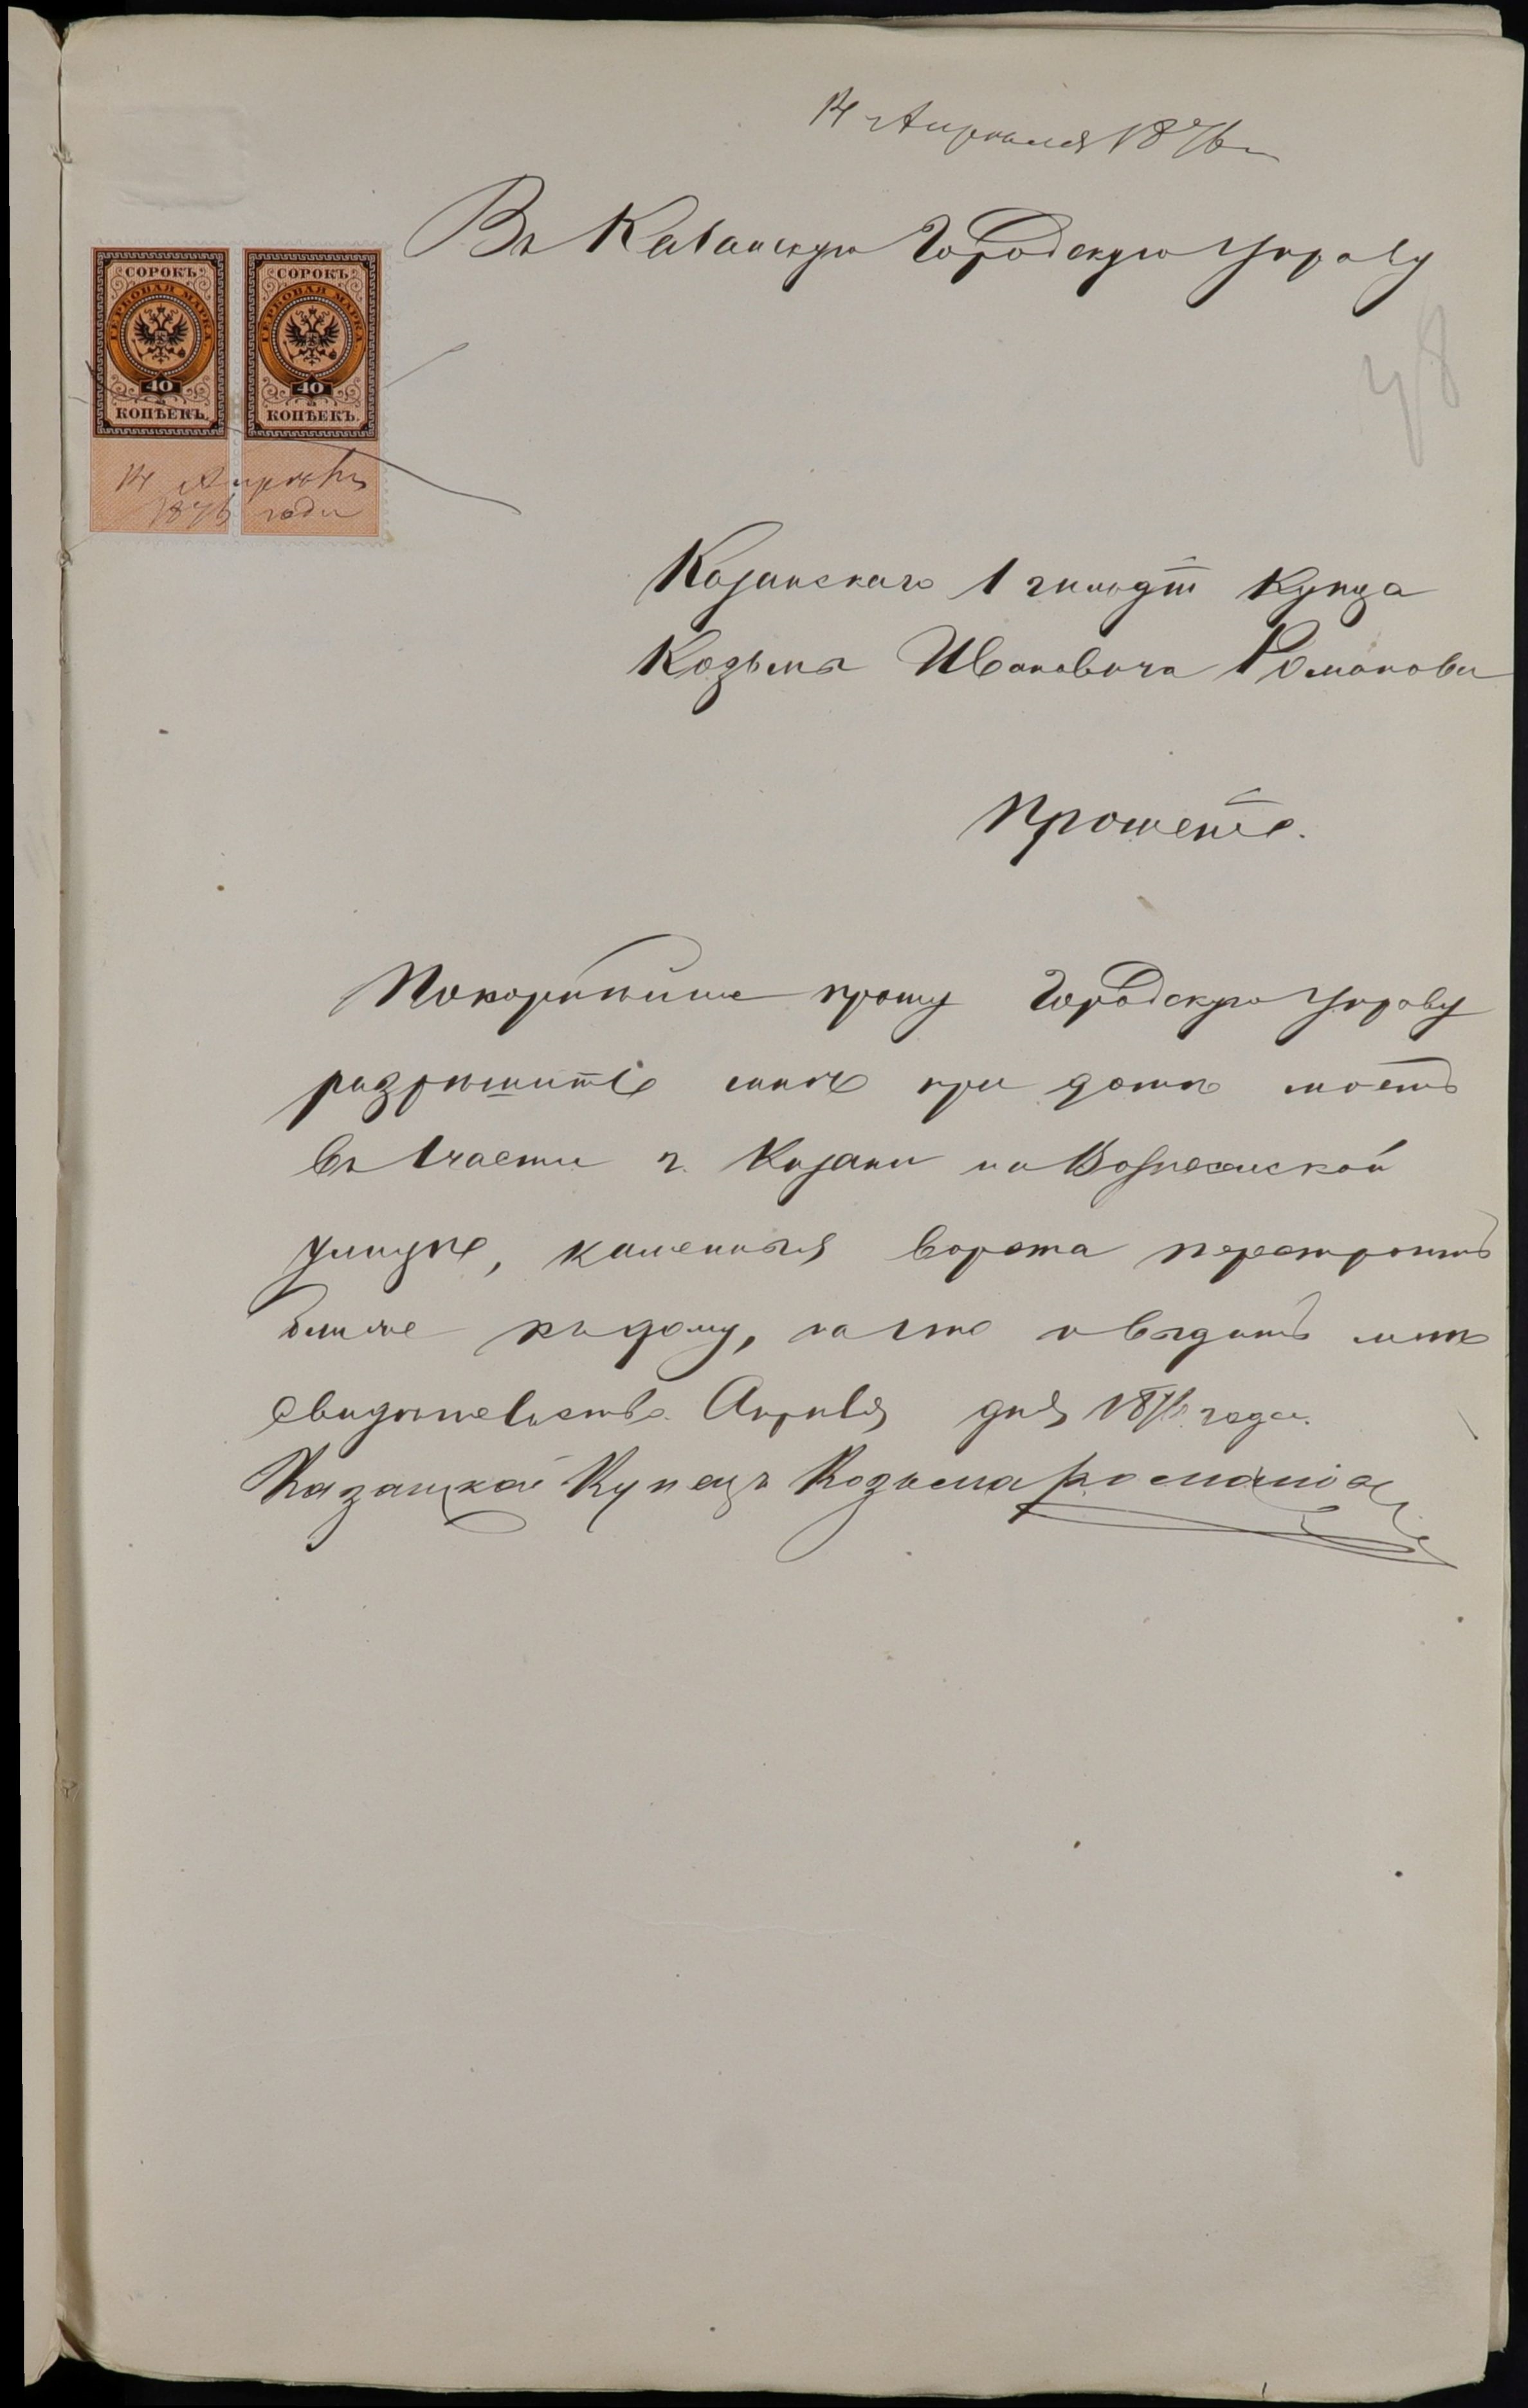 14 Апрѣля 1876 г
Въ Казанскую Городскую Управу
СОРОКЪ СОРОКЪ
ГЕРБОВАЯ МАРКА ГЕРБОВАЯ МАРКА
40 40
КОПѢЕКЪ. КОПѢЕКЪ.
14 Апрѣля
1876 года
48
Казанскаго 1 гильдіи Купца
Козьмы Ивановича Романова
Прошеніе.
Покорнѣйше прошу Городскую Управу
разрѣшить мнѣ при домѣ моемъ
въ 1 части г. Казани на Вознесенской
улицѣ, каменныя ворота перестроить
ближе къ дому, на что и выдать мнѣ
свидѣтельство. Апрѣля дня 1876 года.
Казанской Купецъ Козьма Романовъ